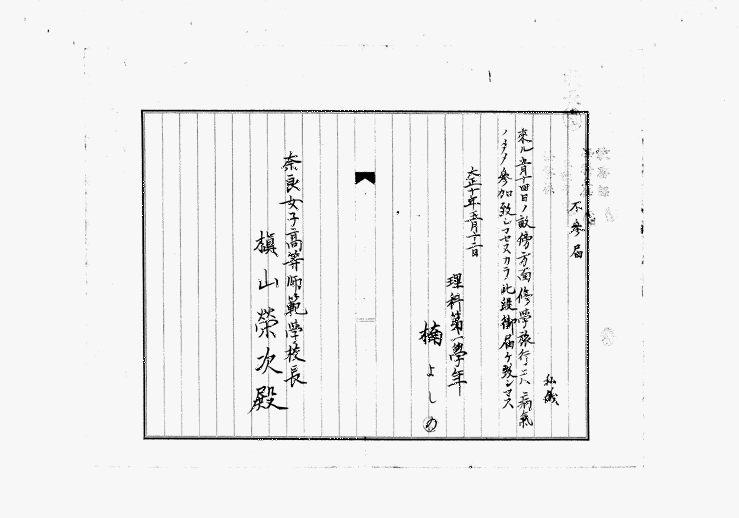 不參届
私儀
來ル五月十四日ノ畝傍方面修學旅行ニハ病氣
ノタメ參加致シマセヌカラ此段御届ケ致シマス
大正十年五月十二日
理科第一學年
楠よしの
奈良女子高等師範學校長
槇山榮次殿